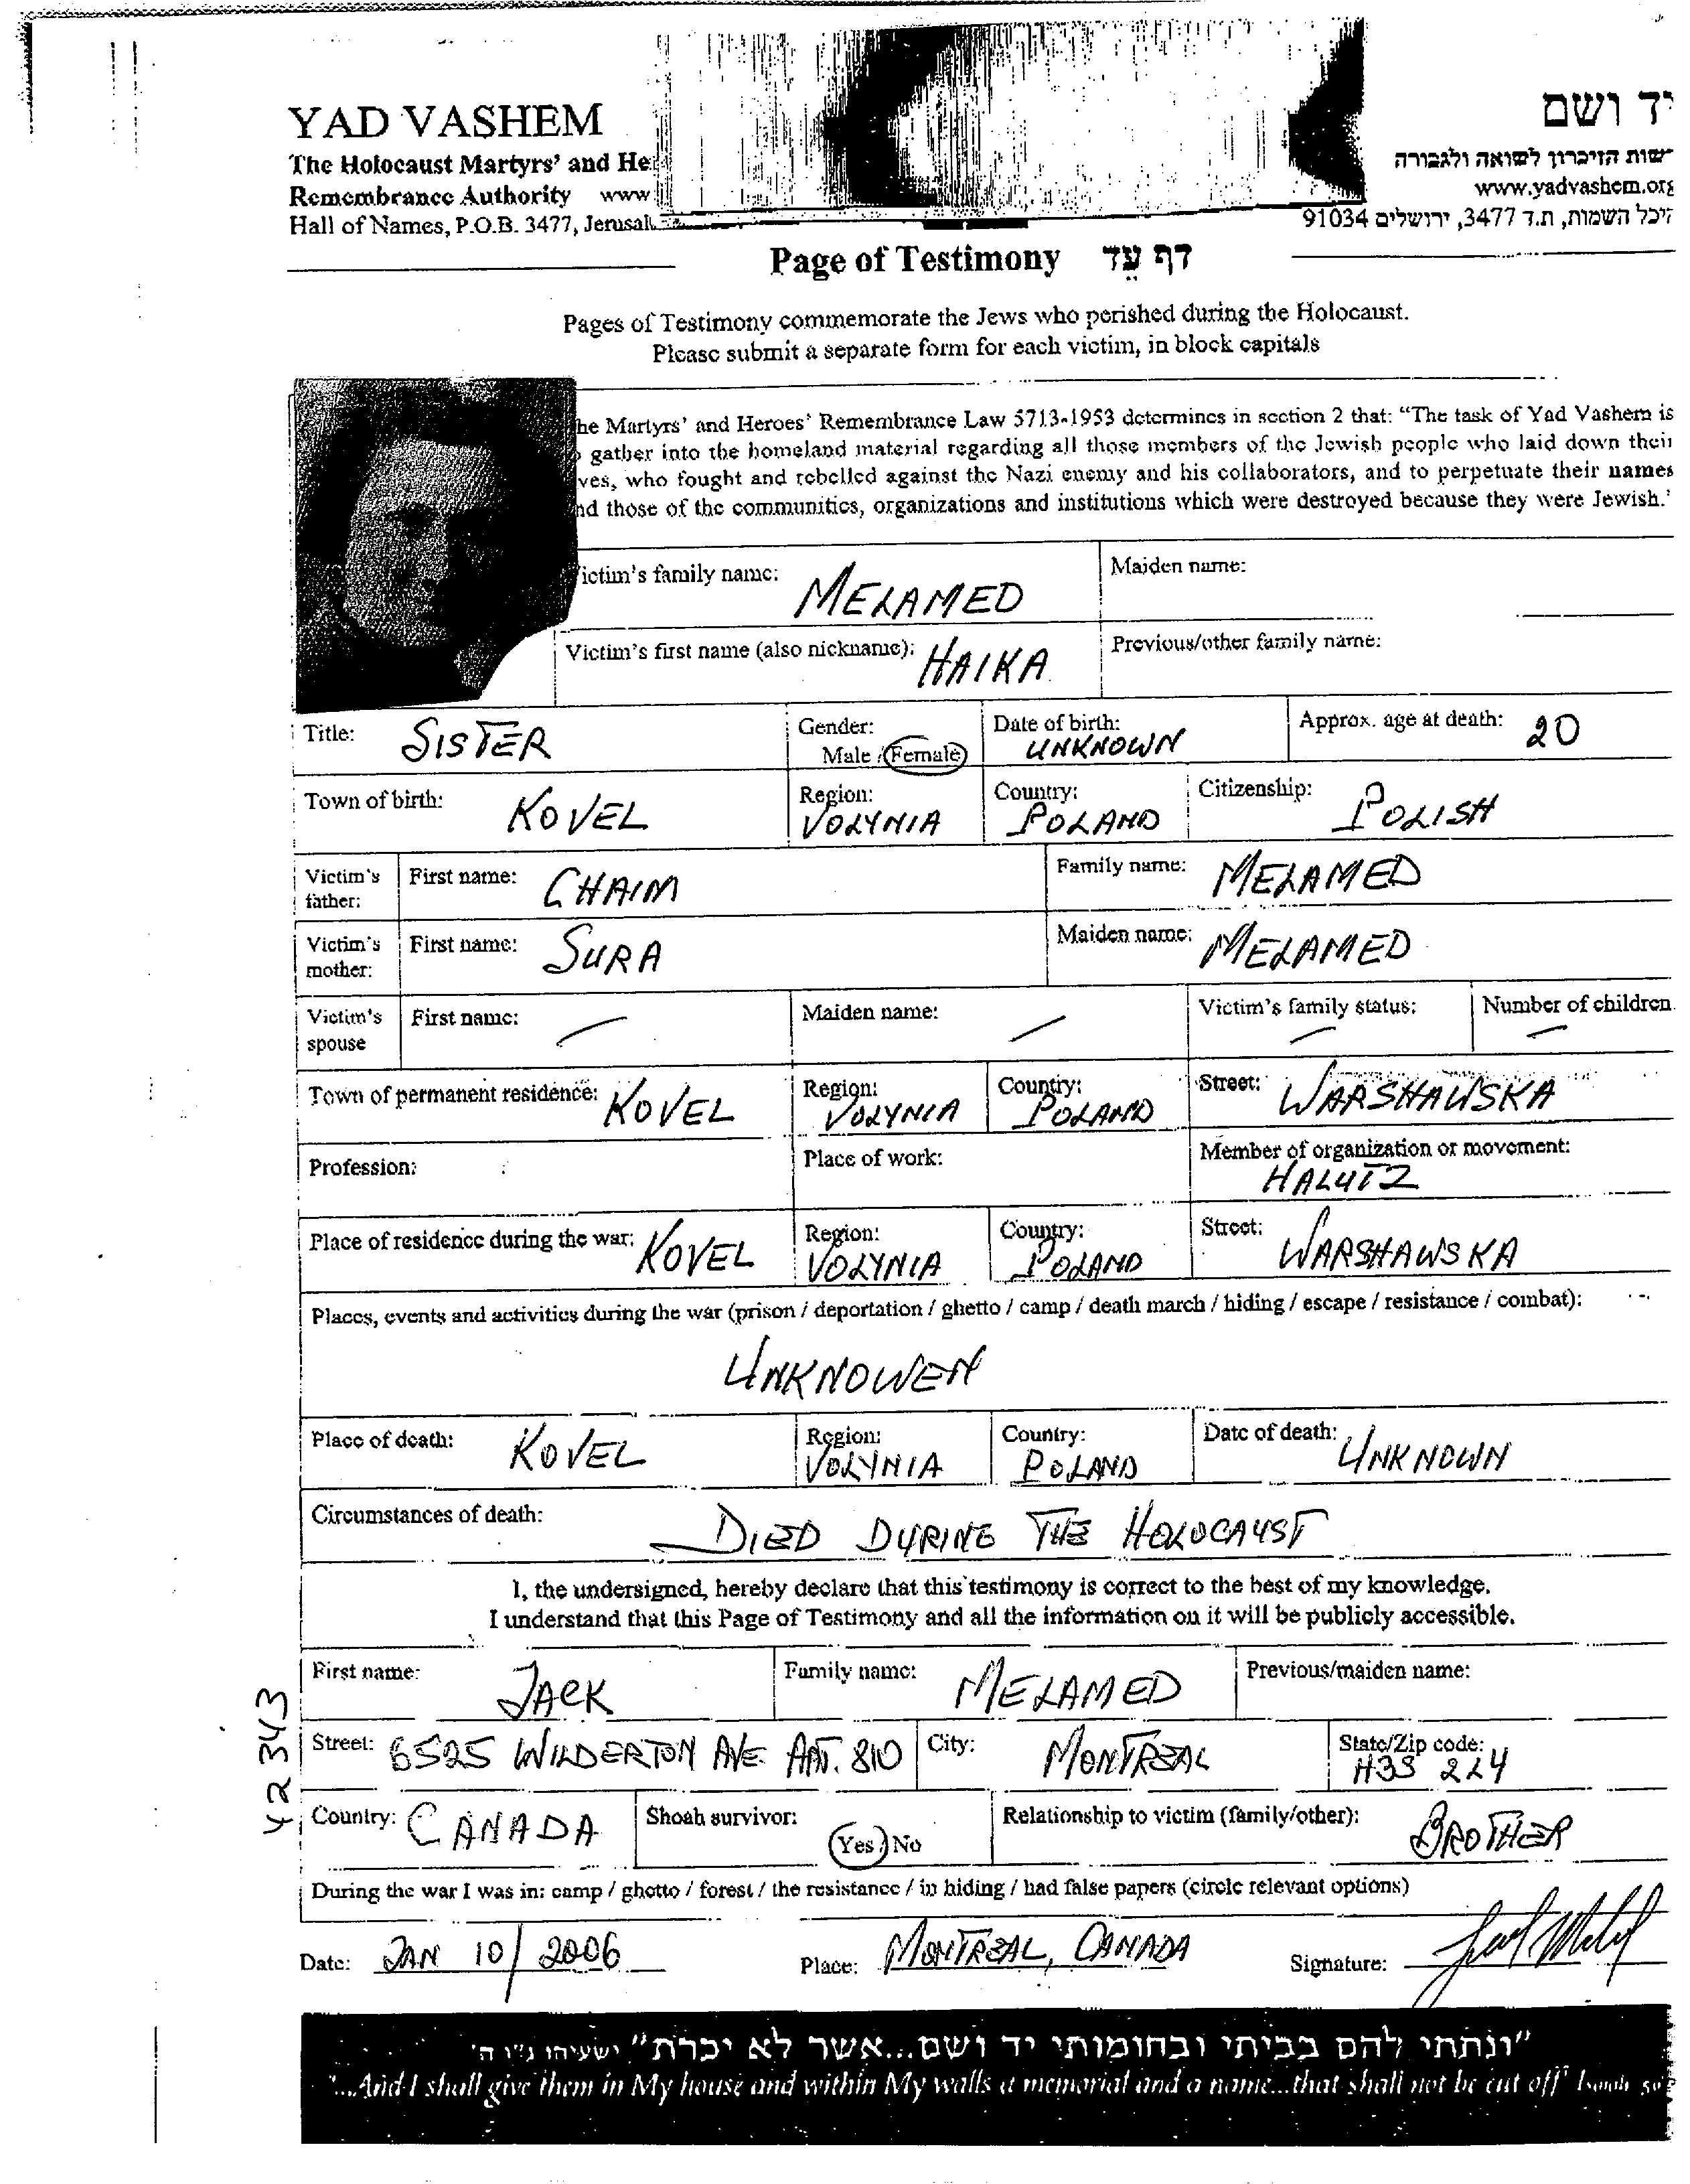 YAD VASHEM
The Holocaust Martyrs' and He
Remembrance Authority www
Hall of Names, P.O.B. 3477, Jerusal
יד ושם
רשות הזיכרון לשואה ולגבורה
www.yadvashem.org
היכל השמות, ת.ד 3477, ירושלים 91034
Page of Testimony דף עֵד
Pages of Testimony commemorate the Jews who perished during the Holocaust.
Please submit a separate form for each victim, in block capitals
he Martyrs' and Heroes' Remembrance Law 5713-1953 determines in section 2 that: "The task of Yad Vashem is
gather into the homeland material regarding all those members of the Jewish people who laid down their
ves, who fought and rebelled against the Nazi enemy and his collaborators, and to perpetuate their names
nd those of the communities, organizations and institutions which were destroyed because they were Jewish.'
ictim's family name: MELAMED Maiden name:
Victim's first name (also nickname): HAIKA Previous/other family name:
Title: SISTER Gender: Male / Female Date of birth: UNKNOWN Approx. age at death: 20
Town of birth: KOVEL Region: VOLYNIA Country: POLAND Citizenship: POLISH
Victim's father: First name: CHAIM Family name: MELAMED
Victim's mother: First name: SURA Maiden name: MELAMED
Victim's spouse First name: — Maiden name: — Victim's family status: — Number of children —
Town of permanent residence: KOVEL Region: VOLYNIA Country: POLAND Street: WARSHAWSKA
Profession: Place of work: Member of organization or movement: HALUTZ
Place of residence during the war: KOVEL Region: VOLYNIA Country: POLAND Street: WARSHAWSKA
Places, events and activities during the war (prison / deportation / ghetto / camp / death march / hiding / escape / resistance / combat):
UNKNOWEN
Place of death: KOVEL Region: VOLYNIA Country: POLAND Date of death: UNKNOWN
Circumstances of death: DIED DURING THE HOLOCAUST
I, the undersigned, hereby declare that this testimony is correct to the best of my knowledge.
I understand that this Page of Testimony and all the information on it will be publicly accessible.
First name: JACK Family name: MELAMED Previous/maiden name:
Street: 6525 WILDERTON AVE. APT. 810 City: MONTREAL State/Zip code: H3S 2L4
Country: CANADA Shoah survivor: Yes / No Relationship to victim (family/other): BROTHER
During the war I was in: camp / ghetto / forest / the resistance / in hiding / had false papers (circle relevant options)
Date: JAN 10/2006 Place: MONTREAL, CANADA Signature:
343
"ונתתי להם בביתי ובחומותי יד ושם...אשר לא יכרת" ישעיהו נ"ו ה'
"...And I shall give them in My house and within My walls a memorial and a name...that shall not be cut off" Isaiah 56